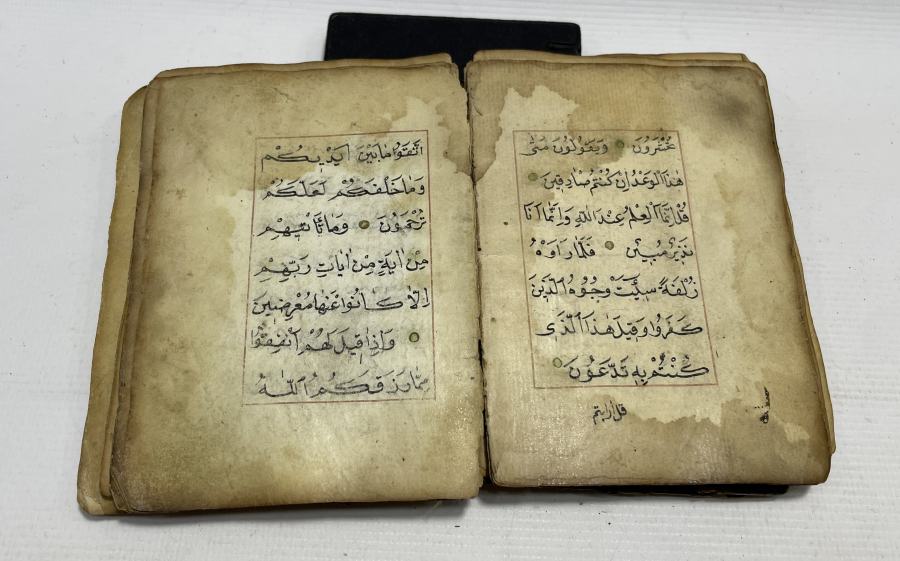 تُحْشَرُونَ وَيَقُولُونَ مَتٰى
هٰذَا الْوَعْدُ اِنْ كُنْتُمْ صَادِقِينَ
قُلْ اِنَّمَا الْعِلْمُ عِنْدَ اللّٰهِ وَاِنَّمَا اَنَا
نَذِيرٌ مُبِينٌ فَلَمَّا رَاَوْهُ
زُلْفَةً سِيئَتْ وُجُوهُ الَّذِينَ
كَفَرُوا وَقِيلَ هٰذَا الَّذِى
كُنْتُمْ بِهِ تَدَّعُونَ
قل ارايتم
اتَّقُوا مَا بَيْنَ اَيْدِيكُمْ
وَمَا خَلْفَكُمْ لَعَلَّكُمْ
تُرْحَمُونَ وَمَا تَاْتِيهِمْ
مِنْ اٰيَةٍ مِنْ اٰيَاتِ رَبِّهِمْ
اِلَّا كَانُوا عَنْهَا مُعْرِضِينَ
وَاِذَا قِيلَ لَهُمْ اَنْفِقُوا
مِمَّا رَزَقَكُمُ اللّٰهُ